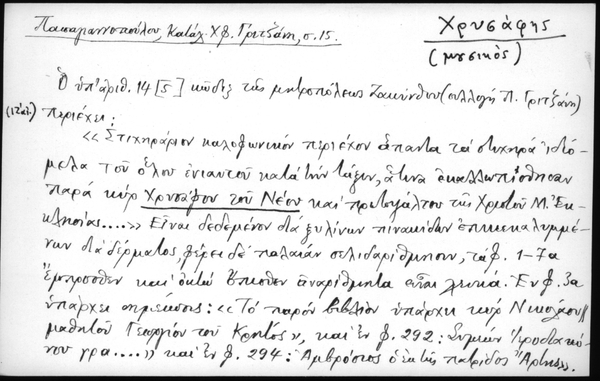 Παπαγιαννοπούλου, Κατάλ. Χφ. Γριτζάνη, σ. 15.
Χρυσάφης
(μουσικός)
Ὁ ὑπ' ἀριθ. 14 [5] κῶδιξ τῆς μητροπόλεως Ζακύνθου (συλλογὴ Π. Γριτζάνη)
(17 αἰ.) περιέχει:
«Στιχηράριον καλοφωνικὸν περιέχον ἅπαντα τὰ στιχηρὰ ἰδιό-
μελα τοῦ ὅλου ἐνιαυτοῦ κατὰ τὴν τάξιν, ἅτινα ἐκαλλωπίσθησαν
παρὰ κὺρ Χρυσάφου τοῦ Νέου καὶ πρωτοψάλτου τῆς Χριστοῦ Μ. Ἐκ-
κλησίας....» Εἶναι δεδεμένον διὰ ξυλίνων πινακίδων ἐπικεκαλυμμέ-
νων διὰ δέρματος, φέρει δὲ παλαιὰν σελιδαρίθμησιν, τὰ φ. 1-7α
ἔμπροσθεν καὶ ὀκτὼ ὄπισθεν ἀναρίθμητα εἶναι λευκά. Ἐν φ. 3α
ὑπάρχει σημείωσις: «Τὸ παρὸν βιβλίον ὑπάρχει κὺρ Νικολάου
μαθητοῦ Γεωργίου τοῦ Κρητός», καὶ ἐν φ. 292: Συμεὼν Ἱεροδιακό-
νου γρα....» καὶ ἐν φ. 294: Ἀμβρόσιος ὁ ἐκ τῆς πατρίδος Ἄρτης».